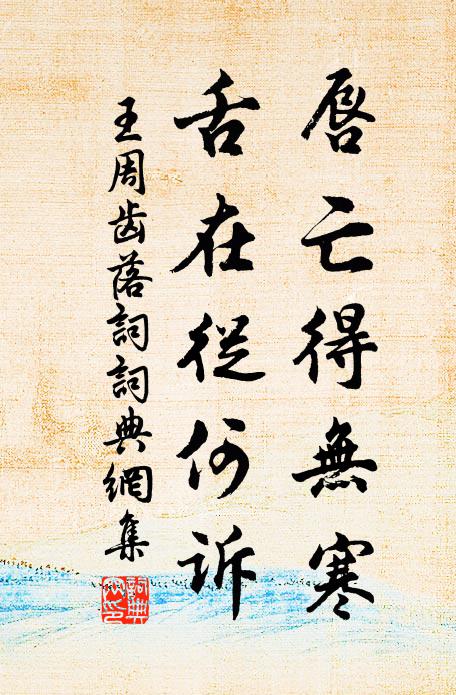 唇亡得無寒
舌在從何訴
王周齿落詞詞典網集